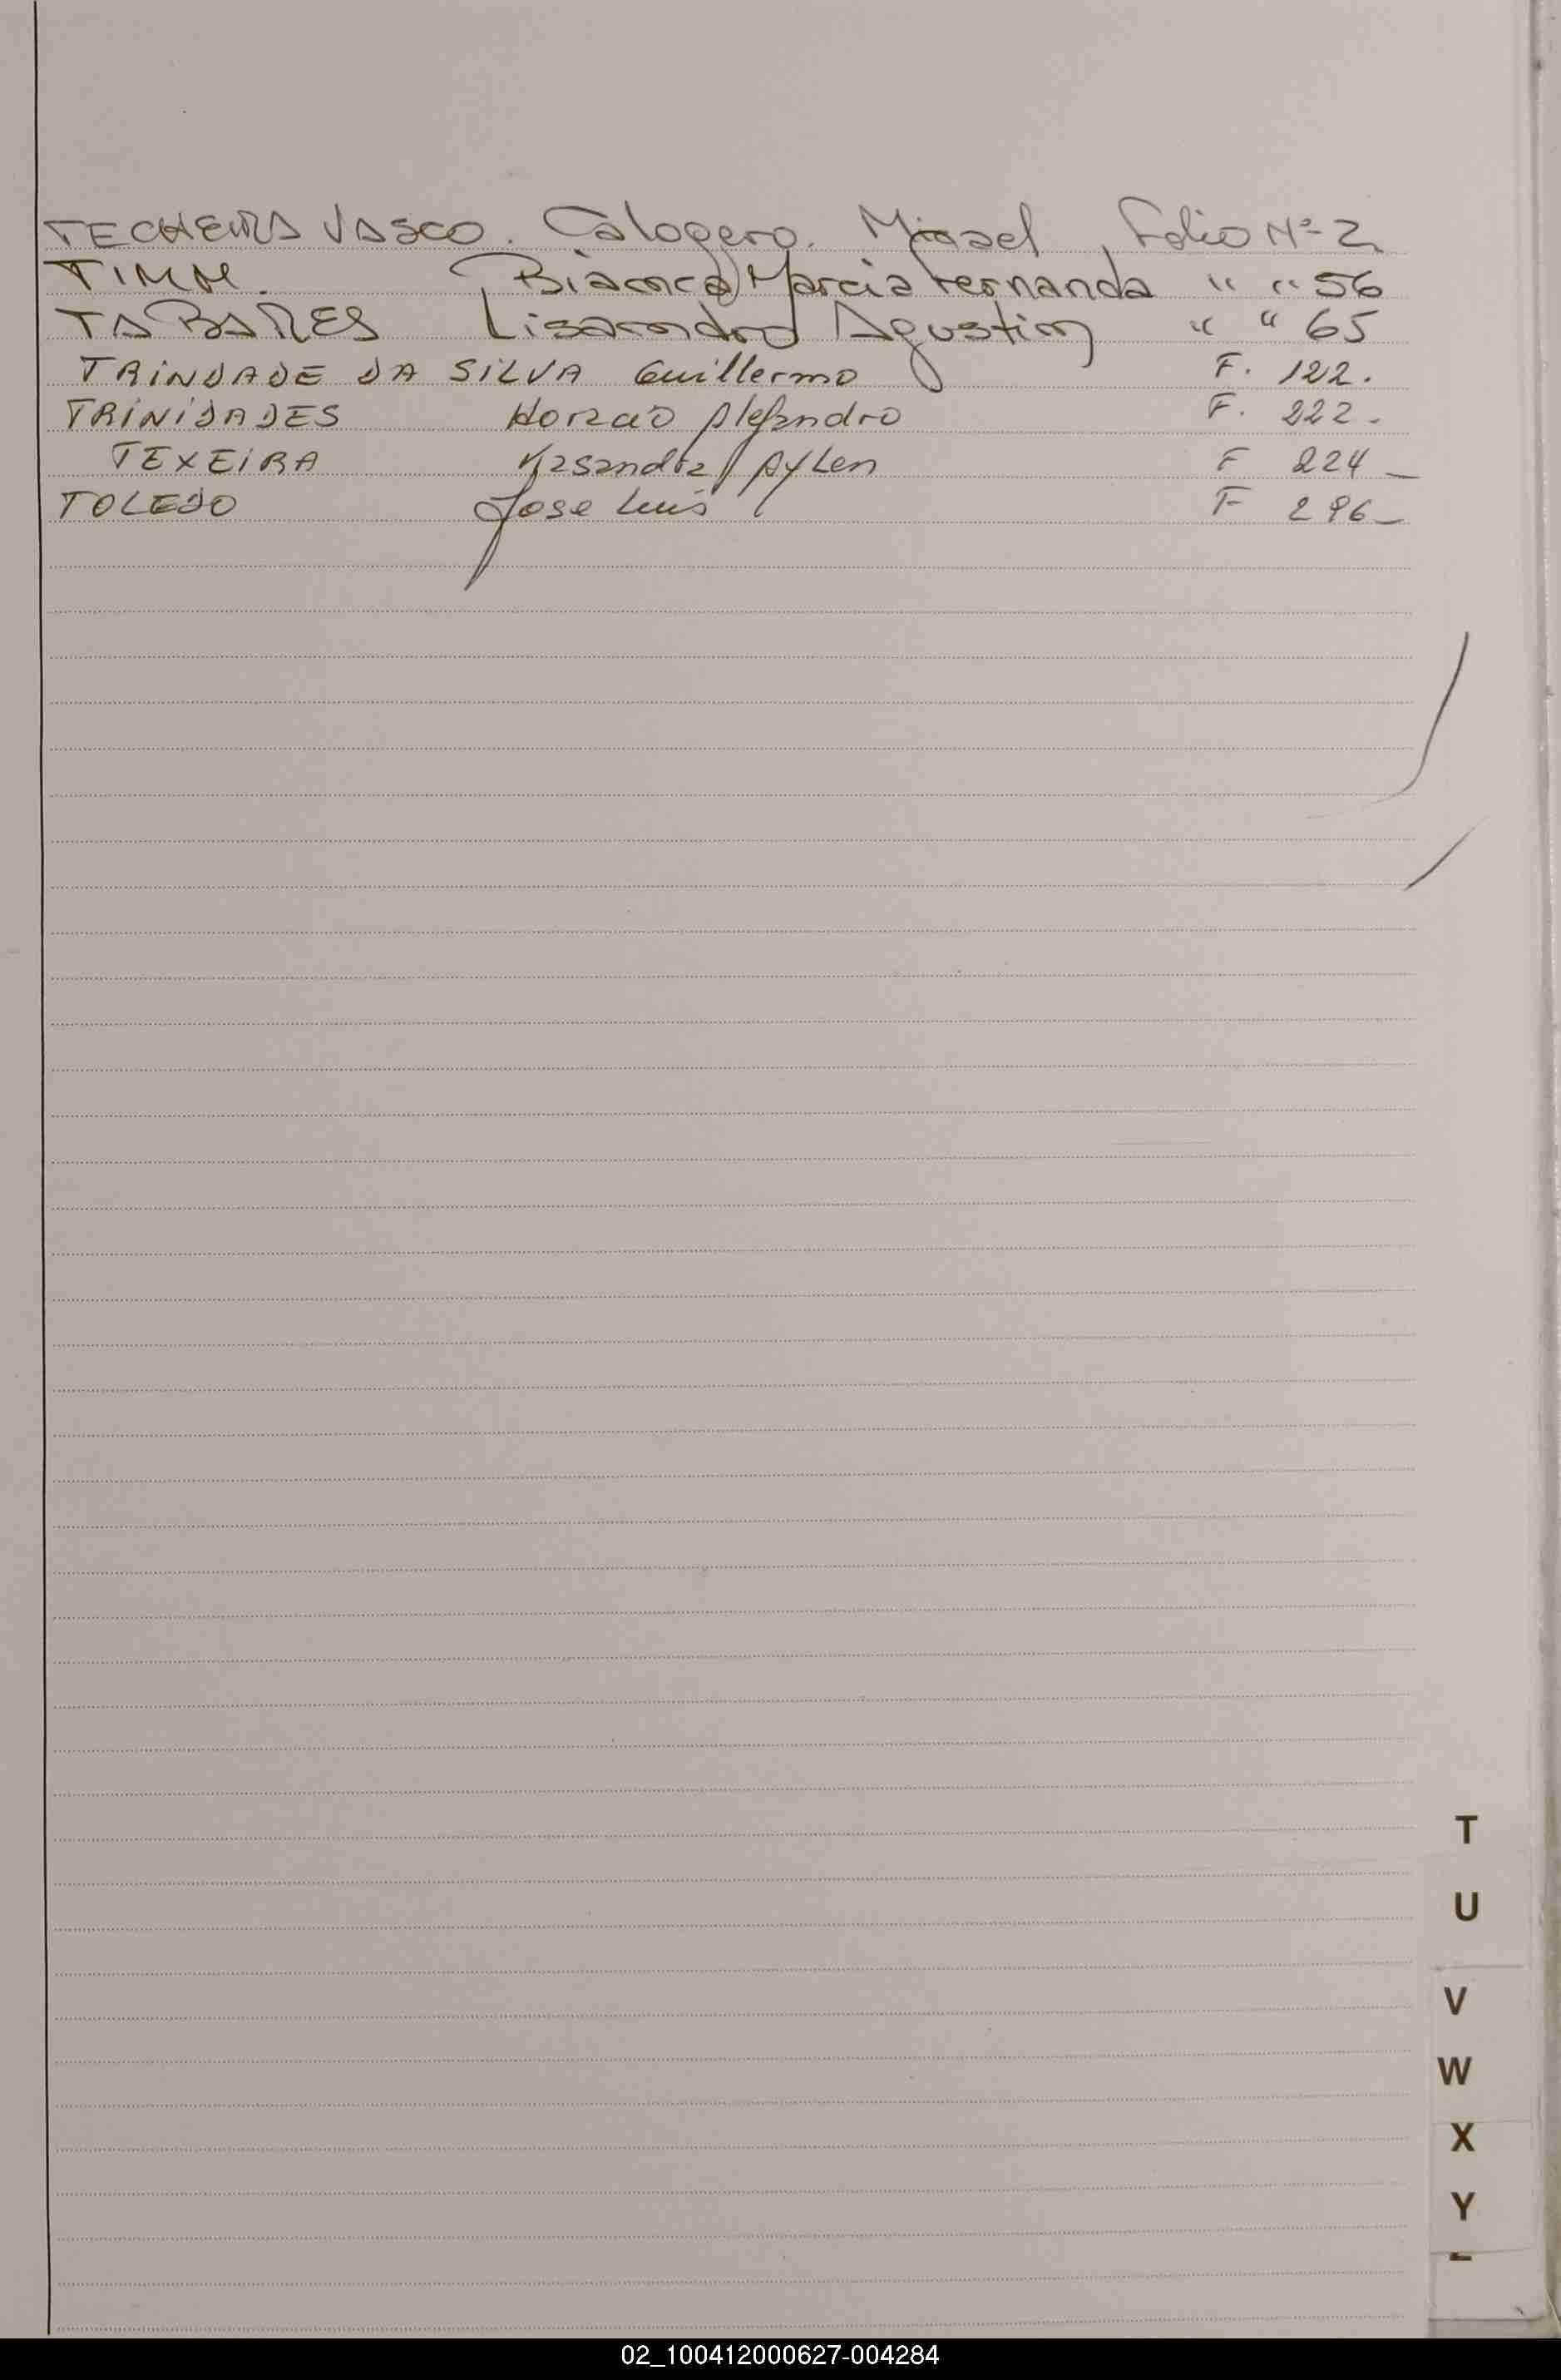 TECHEIRA VASCO. Calogero. Misael, Folio Nº 2.
TIMM. Bianca Marcia Fernanda " " 56
TABARES Lisandro Agustin " " 65
TRINDADE DA SILVA Guillermo F. 122.
TRINIDADES Horacio Alejandro F. 222-
TEXEIRA Kasandra Aylen F 224-
TOLEDO Jose Luis F 296-
T
U
V
W
X
Y
02_100412000627-004284